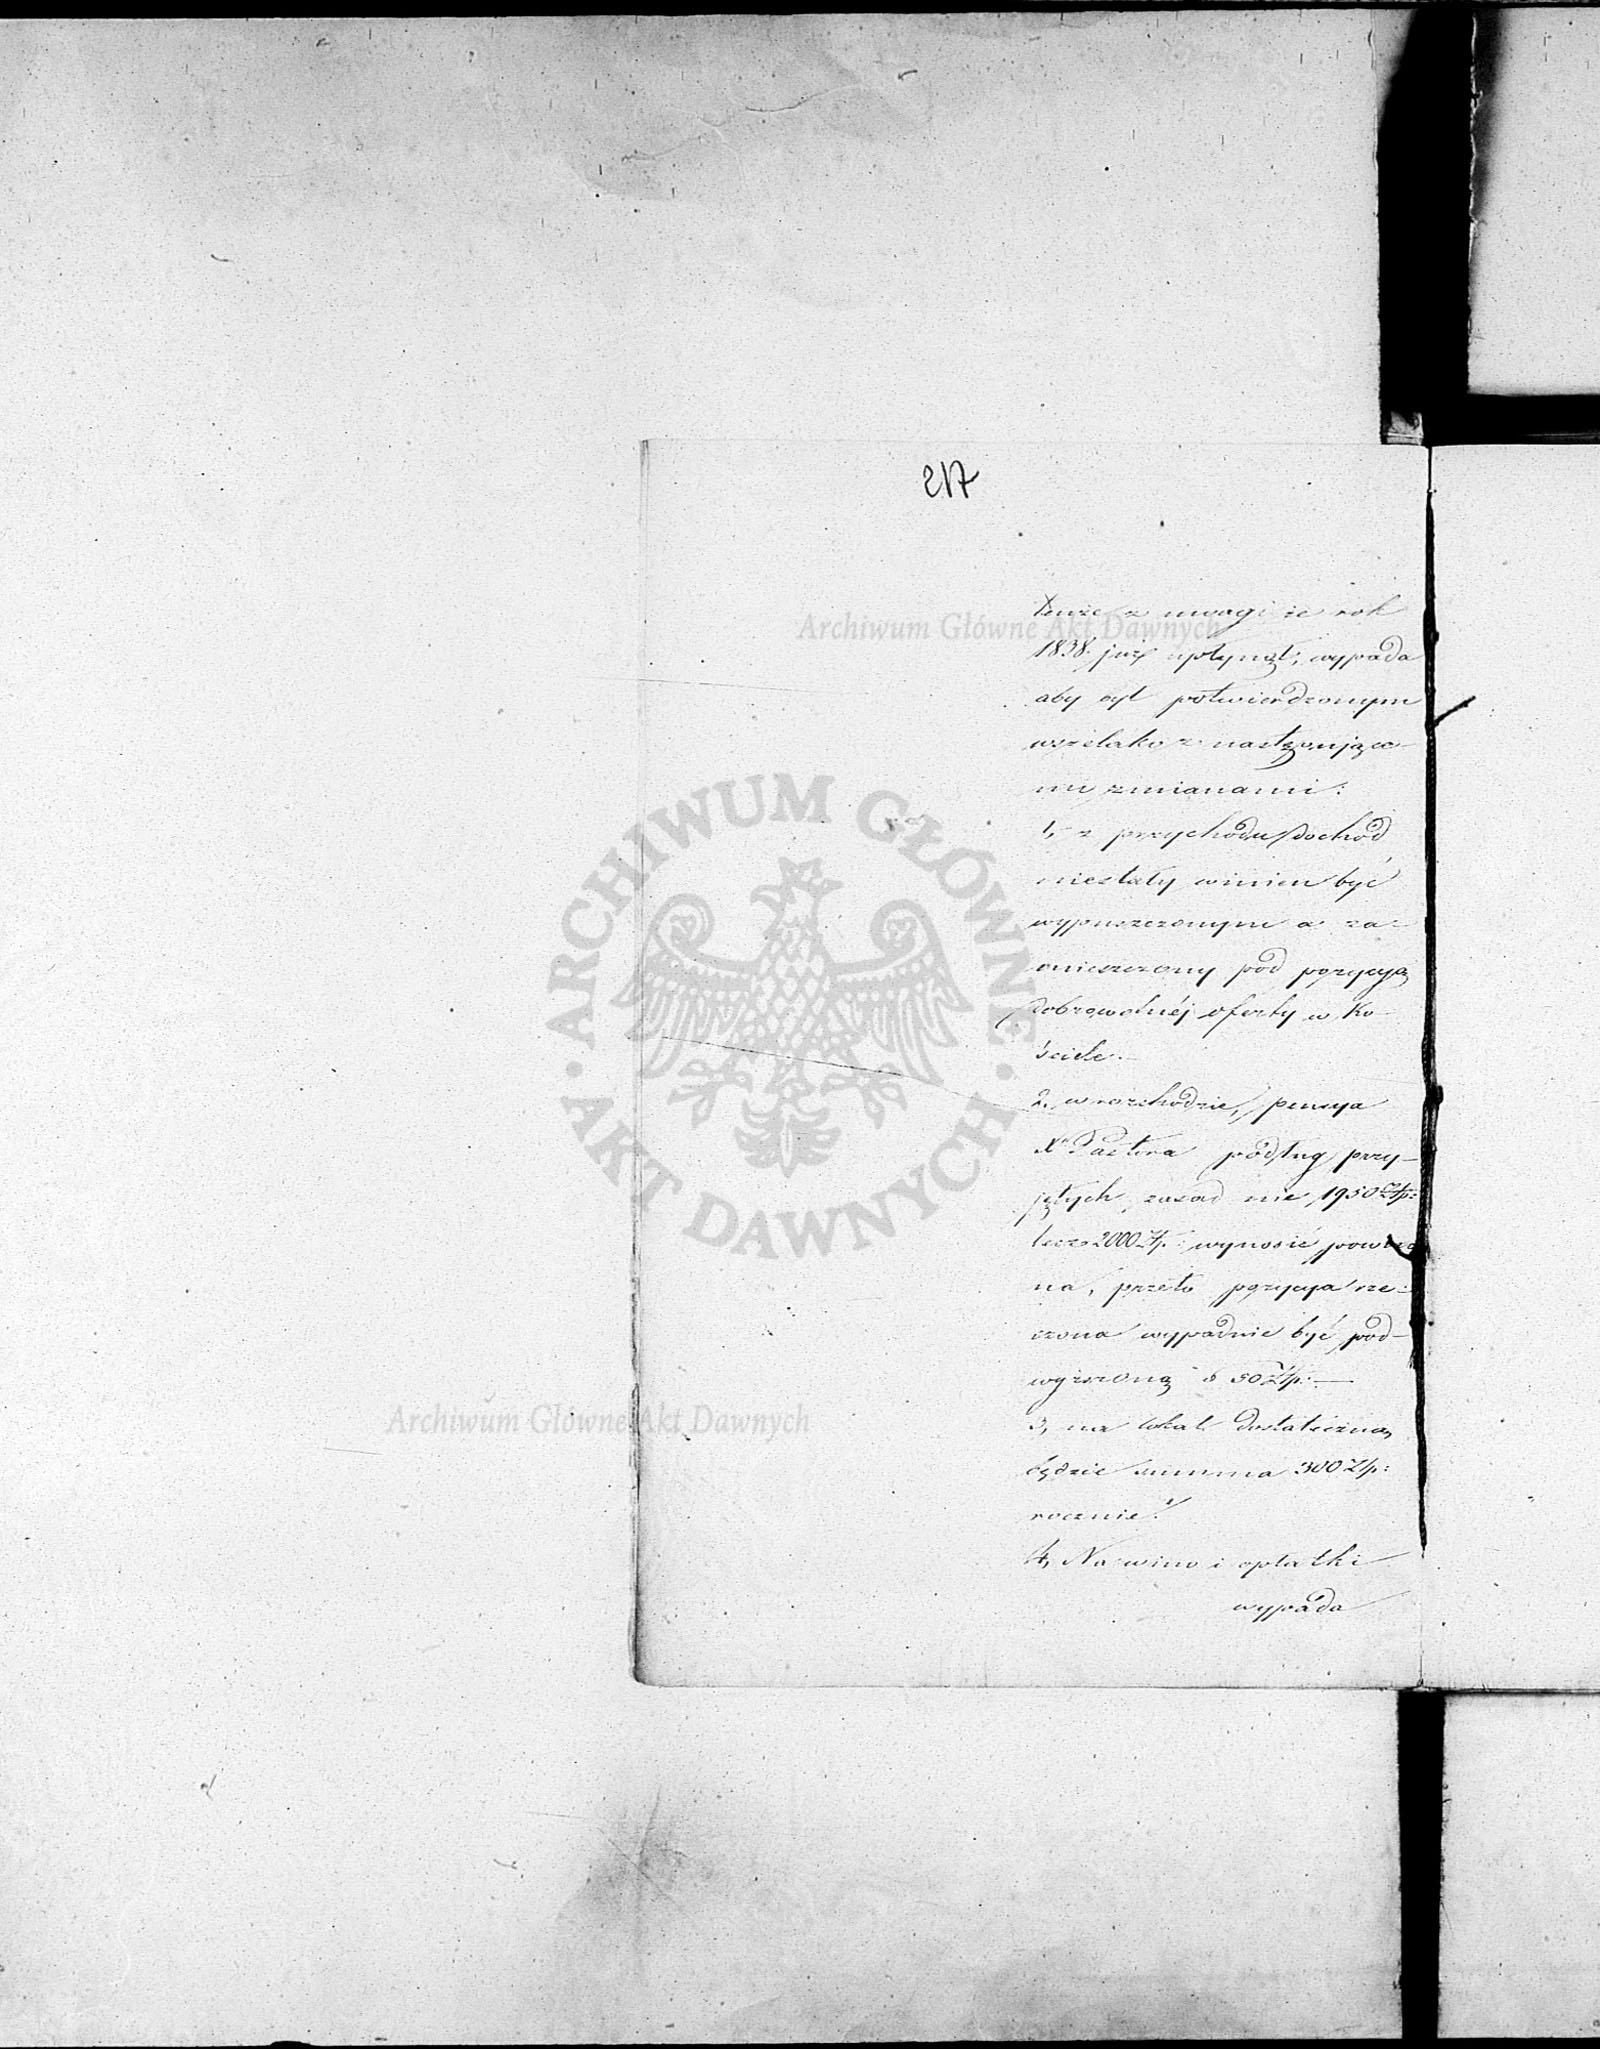 217
tenże z uwagi że rok
1838. już upłynął, wypada
aby był potwierdzonym
wszelako z następujące-
mi zmianami:
1, z przychodu dochód
niestały winien być
wypuszczonym a za-
mieszczony pod pozycyą
dobrowolnéj oferty w Ko-
ściele.
2. w rozchodzie, pensya
Xa Pastora podług przy-
jętych zasad nie 1950 Złp:
lecz 2000 Złp: wynosić powin-
na, przeto pozycya rze-
czona wypadnie być pod-
wyższoną o 50 Złp:
3, na lokal dostateczną
będzie summa 300 Złp:
rocznie.
4, Na wino i opłatki
wypada
Archiwum Główne Akt Dawnych
ARCHIWUM GŁÓWNE
· AKT DAWNYCH ·
Archiwum Główne Akt Dawnych